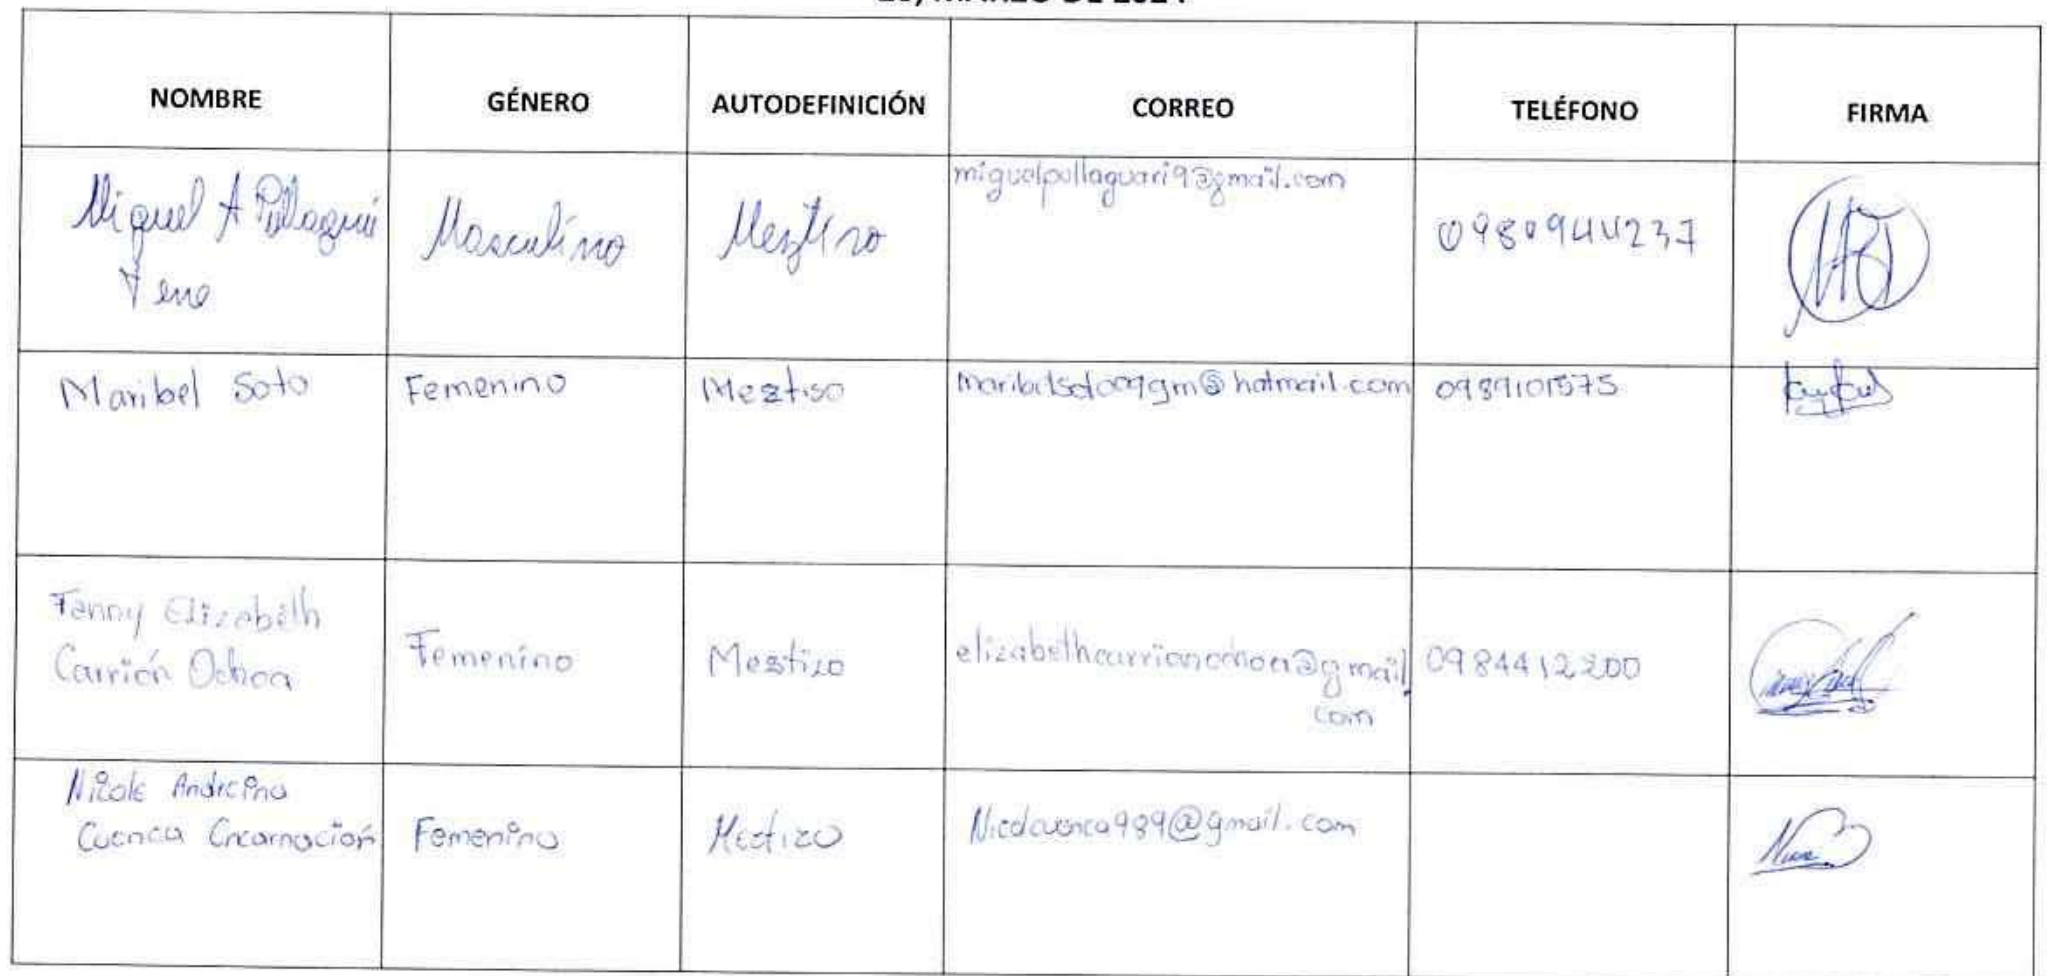 MARZO DE 2024
NOMBRE GÉNERO AUTODEFINICIÓN CORREO TELÉFONO FIRMA
Miguel A Pullaguari Tene Masculino Meztizo miguelpullaguari9@gmail.com 0980944237
Maribel Soto Femenino Meztiso 0989101575
Fanny Elizabeth
Carrión Ochoa Femenino Mestizo elizabethcarrionochoa@gmail.
com 0984412200
Nicole Andreina
Cuenca Encarnación Femenino Mestizo Nicolcuenca989@gmail.com